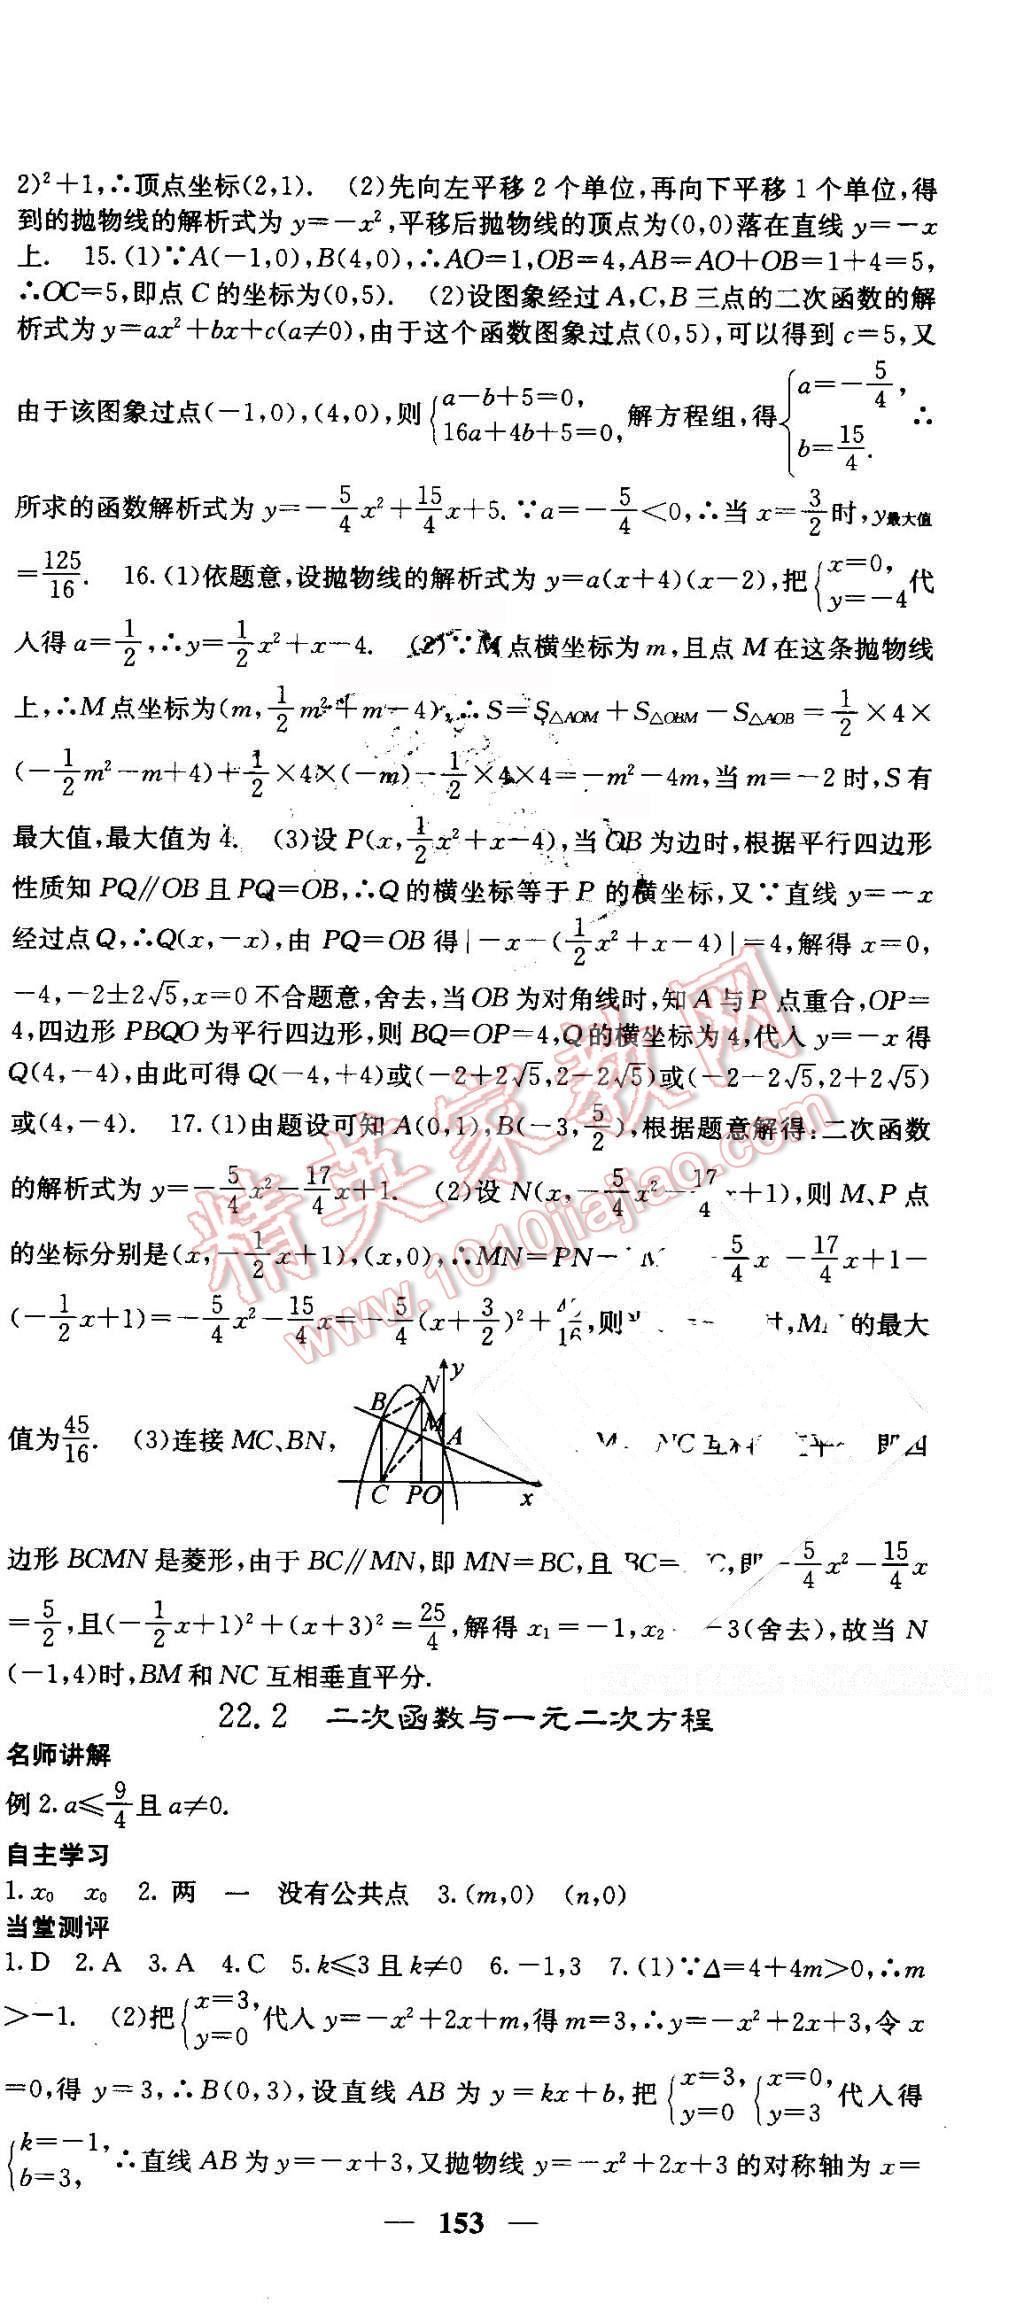 2)²+1,∴顶点坐标(2,1). (2)先向左平移 2 个单位,再向下平移 1 个单位,得
到的抛物线的解析式为 y=-x²,平移后抛物线的顶点为(0,0)落在直线 y=-x
上. 15.(1)∵A(-1,0),B(4,0),∴AO=1,OB=4,AB=AO+OB=1+4=5,
∴OC=5,即点 C 的坐标为(0,5). (2)设图象经过 A,C,B 三点的二次函数的解
析式为 y=ax²+bx+c(a≠0),由于这个函数图象过点(0,5),可以得到 c=5,又
由于该图象过点(-1,0),(4,0),则{a-b+5=0, 16a+4b+5=0, 解方程组,得{a=-5/4, b=15/4. ∴
所求的函数解析式为 y=-5/4x²+15/4x+5. ∵a=-5/4<0,∴当 x=3/2时,y最大值
=125/16. 16.(1)依题意,设抛物线的解析式为 y=a(x+4)(x-2),把{x=0, y=-4代
入得 a=1/2,∴y=1/2x²+x-4. (2)∵M点横坐标为 m,且点 M 在这条抛物线
上,∴M 点坐标为(m,1/2m²+m-4),∴S=S△AOM+S△OBM-S△AOB=1/2×4×
(-1/2m²-m+4)+1/2×4×(-m)-1/2×4×4=-m²-4m,当 m=-2 时,S 有
最大值,最大值为 4. (3)设 P(x,1/2x²+x-4),当 OB 为边时,根据平行四边形
性质知 PQ∥OB 且 PQ=OB,∴Q 的横坐标等于 P 的横坐标,又∵直线 y=-x
经过点 Q,∴Q(x,-x),由 PQ=OB 得|-x-(1/2x²+x-4)|=4,解得 x=0,
-4,-2±2√5,x=0 不合题意,舍去,当 OB 为对角线时,知 A 与 P 点重合,OP=
4,四边形 PBQO 为平行四边形,则 BQ=OP=4,Q 的横坐标为 4,代入 y=-x 得
Q(4,-4),由此可得 Q(-4,+4)或(-2+2√5,2-2√5)或(-2-2√5,2+2√5)
或(4,-4). 17.(1)由题设可知 A(0,1),B(-3,5/2),根据题意解得:二次函数
的解析式为 y=-5/4x²-17/4x+1. (2)设 N(x,-5/4x²-17/4x+1),则 M、P 点
的坐标分别是(x,-1/2x+1),(x,0),∴MN=PN- -5/4x -17/4x+1-
(-1/2x+1)=-5/4x²-15/4x=-5/4(x+3/2)²+45/16,则 ,M 的最大
值为45/16. (3)连接 MC、BN,
y
B
N
M
A
C
P
O
x
NC 互相 即四
边形 BCMN 是菱形,由于 BC∥MN,即 MN=BC,且 BC= C,即 -5/4x²-15/4x
=5/2,且(-1/2x+1)²+(x+3)²=25/4,解得 x₁=-1,x₂ -3(舍去),故当 N
(-1,4)时,BM 和 NC 互相垂直平分.
22.2 二次函数与一元二次方程
名师讲解
例 2. a≤9/4且 a≠0.
自主学习
1. x₀ x₀ 2. 两 一 没有公共点 3. (m,0) (n,0)
当堂测评
1. D 2. A 3. A 4. C 5. k≤3 且 k≠0 6. -1,3 7. (1)∵Δ=4+4m>0,∴m
>-1. (2)把{x=3, y=0代入 y=-x²+2x+m,得 m=3,∴y=-x²+2x+3,令 x
=0,得 y=3,∴B(0,3),设直线 AB 为 y=kx+b,把{x=3, y=0 {x=0, y=3代入得
{k=-1, b=3, ∴直线 AB 为 y=-x+3,又抛物线 y=-x²+2x+3 的对称轴为 x=
— 153 —
精英家教网
www.1010jiajiao.com